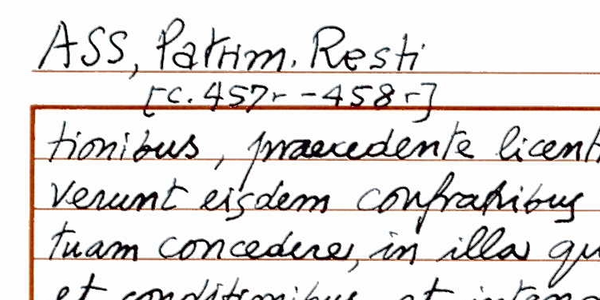 ASS, Patrim. Resti
[c. 457r - 458r]
tionibus, praecedente licent
verunt eisdem confratribus
tuam concedere, in illa qu
et conditionibus et